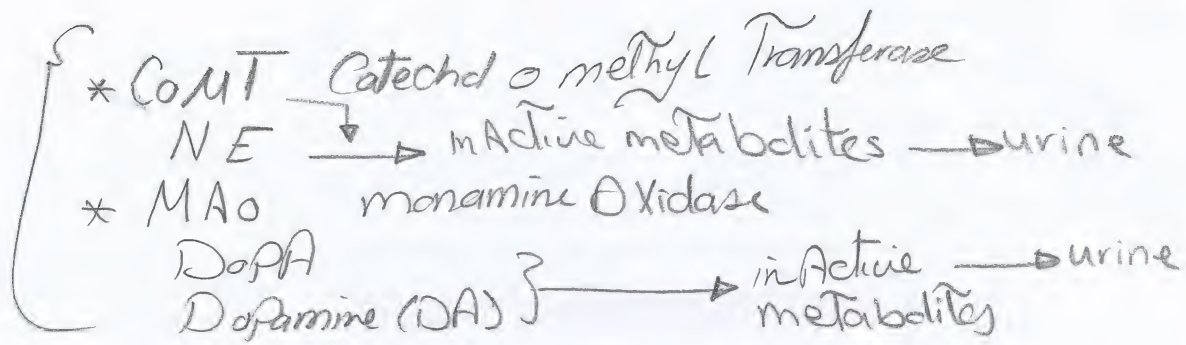 * COMT Catechol o methyl Transferase
NE → inActive metabolites → urine
* MAO monamine Oxidase
DOPA
Dopamine (DA) } → inActive → urine
metabolites